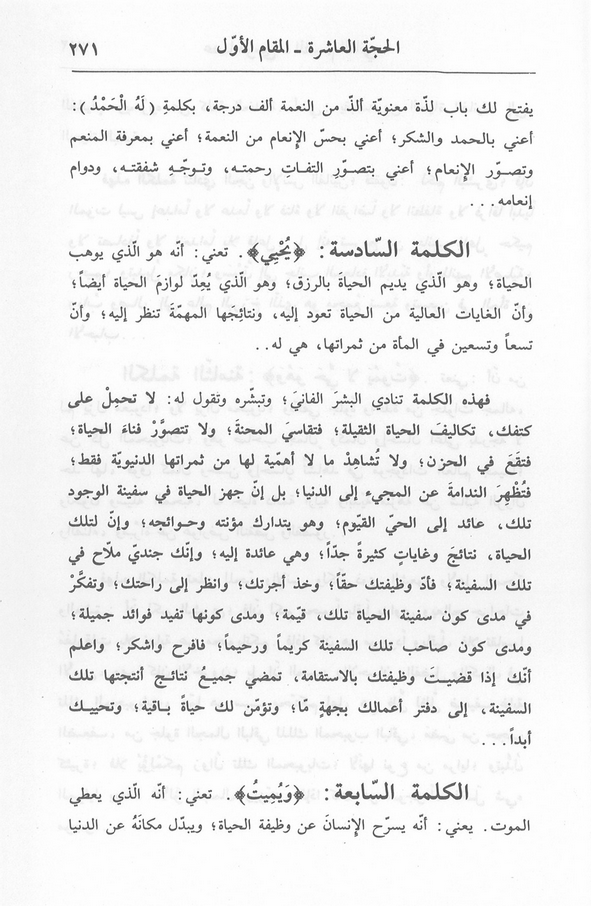 الحجّة العاشرة - المقام الأوّل ٢٧١
يفتح لك باب لذّة معنويّة ألذّ من النعمة ألف درجة، بكلمةِ (لَهُ الْحَمْدُ):
أعني بالحمد والشكر؛ أعني بحسّ الإنعام من النعمة؛ أعني بمعرفة المنعم
وتصـوّر الإنعـام؛ أعني بتصـوّرِ التفـاتِ رحمتـه، وتـوجّـهِ شفقتـه، ودوام
إنعامه...
الكلمة السّادسة: ﴿يُحْيِي﴾. تعني: أنّه هو الّذي يوهب
الحياة؛ وهو الّذي يديم الحياة بالرزق؛ وهو الّذي يُعِدّ لوازمَ الحياة أيضاً؛
وأنّ الغايات العالية من الحياة تعود إليه، ونتائجَها المهمّة تنظر إليه؛ وأنّ
تسعاً وتسعين في المأة من ثمراتها، هي له..
فهذه الكلمة تنادي البشرَ الفانيَ؛ وتبشّره وتقول له: لا تحملْ على
كتفك، تكاليفَ الحياة الثقيلة؛ فتقاسيَ المحنةَ؛ ولا تتصوَّرْ فناءَ الحياة؛
فتقعَ في الحزن؛ ولا تُشاهِدْ ما لا أهمّية لها من ثمراتها الدنيويّة فقط؛
فتُظْهِرَ الندامةَ عن المجيء إلى الدنيا؛ بل إنّ جهز الحياة في سفينة الوجود
تلك، عائد إلى الحيّ القيّوم؛ وهو يتدارك مؤنته وحـوائجه؛ وإنّ لتلك
الحياة، نتائجَ وغاياتٍ كثيرةً جدّاً؛ وهي عائدة إليه؛ وإنّك جنديّ ملّاح في
تلك السفينة؛ فأدّ وظيفتك حقّاً؛ وخذ أجرتك؛ وانظر إلى راحتك؛ وتفكَّرْ
في مدى كون سفينة الحياة تلك، قيّمة؛ ومدى كونها تفيد فوائد جميلة؛
ومدى كون صاحب تلك السفينة كريماً ورحيماً؛ فافرح واشكر؛ واعلم
أنّك إذا قضيـتَ وظيفتك بالاستقامة، تمضي جميعُ نتائـج أنتجتها تلك
السفينة، إلى دفتر أعمالك بجهةٍ مّا؛ وتؤمّن لك حياةً بـاقية؛ وتحييـك
أبداً...
الكلمة السّابعة: ﴿وَيُمِيتُ﴾. تعني: أنّه الّذي يعطي
الموت. يعني: أنّه يسرّح الإنسانَ عن وظيفة الحياة؛ ويبدّل مكانَهُ عن الدنيا